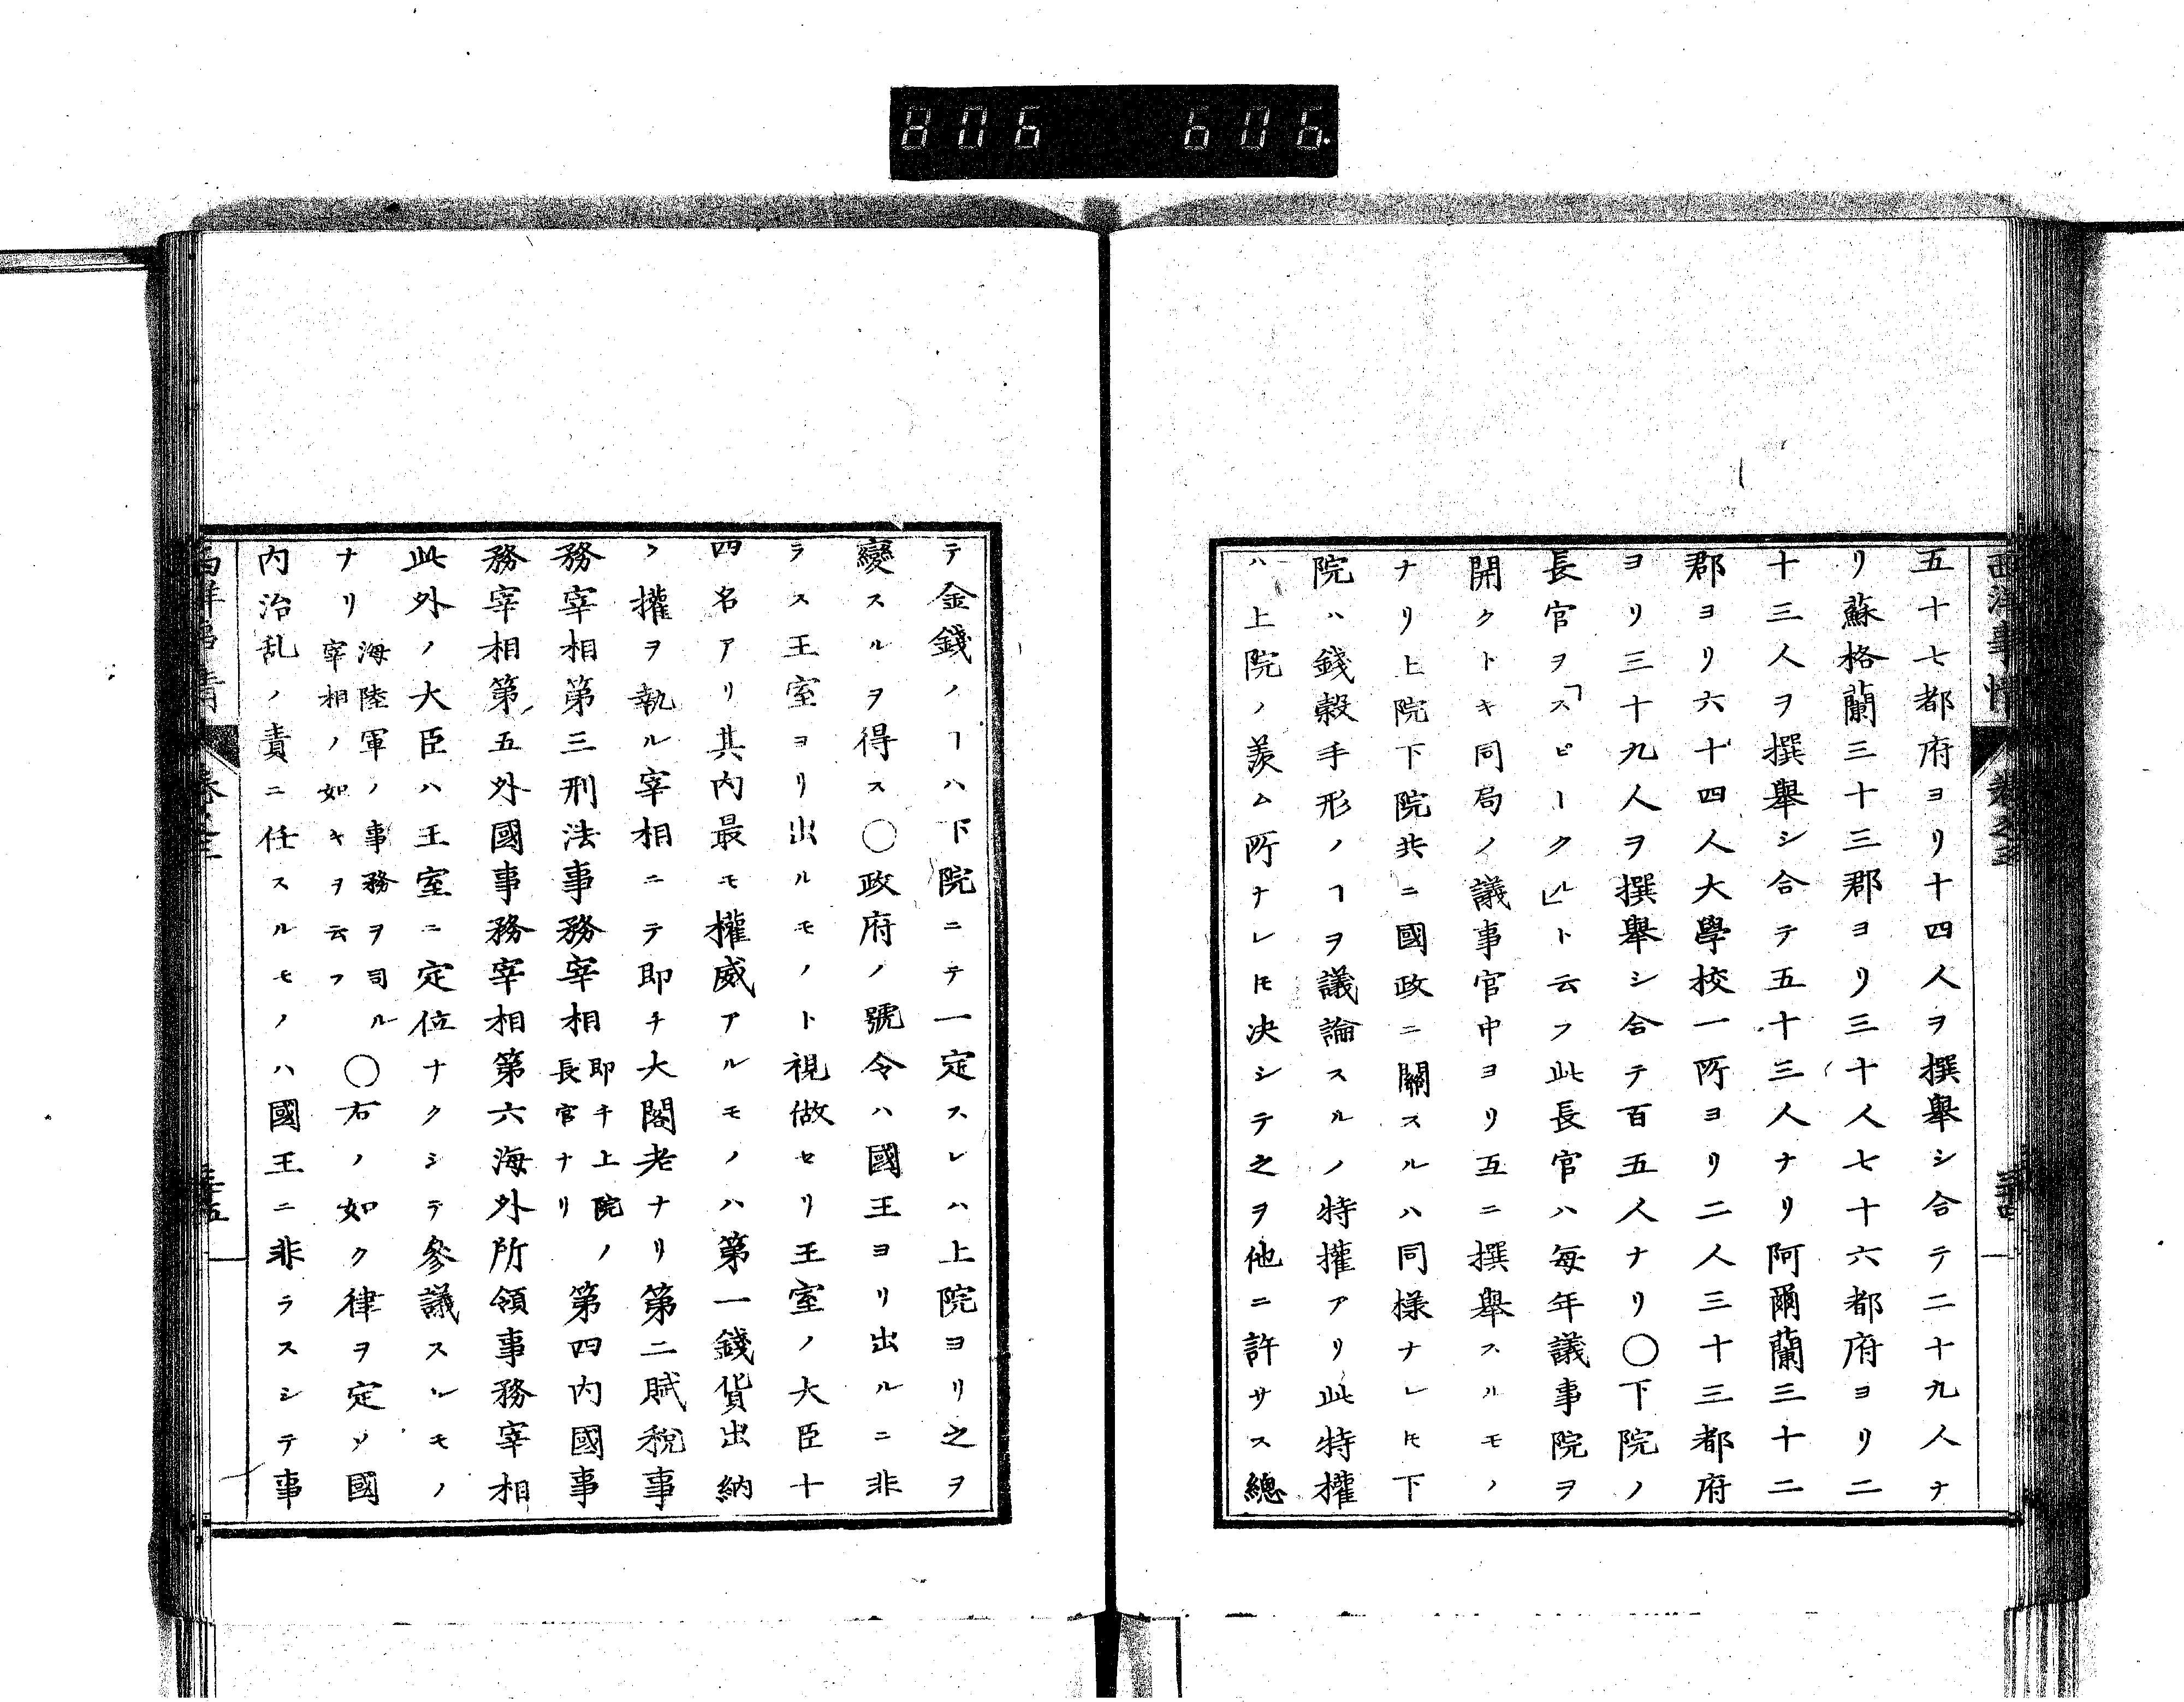 806 606
西洋事情 卷之三 三十四
五十七都府ヨリ十四人ヲ撰舉シ合テ二十九人ナ
リ蘇格蘭三十三郡ヨリ三十人七十六都府ヨリ二
十三人ヲ撰舉シ合テ五十三人ナリ阿爾蘭三十二
郡ヨリ六十四人大學校一所ヨリ二人三十三都府
ヨリ三十九人ヲ撰舉シ合テ百五人ナリ〇下院ノ
長官ヲ「スピークル」ト云フ此長官ハ每年議事院ヲ
開クトキ同局ノ議事官中ヨリ互ニ撰舉スルモノ
ナリ上院下院共ニ國政ニ關スルハ同樣ナレ𪜈下
院ハ錢穀手形ノヿヲ議論スルノ特權アリ此特權
ハ上院ノ羨ム所ナレ𪜈決シテ之ヲ他ニ許サス總
テ金錢ノヿハ下院ニテ一定スレハ上院ヨリ之ヲ
變スルヲ得ス〇政府ノ號令ハ國王ヨリ出ルニ非
ラス王室ヨリ出ルモノト視做セリ王室ノ大臣十
四名アリ其內最モ權威アルモノハ第一錢貨出納
ノ權ヲ執ル宰相ニテ即チ大閣老ナリ第二賦稅事
務宰相第三刑法事務宰相即チ上院ノ長官ナリ第四內國事
務宰相第五外國事務宰相第六海外所領事務宰相
此外ノ大臣ハ王室ニ定位ナクシテ參議スルモノ
ナリ海陸軍ノ事務ヲ司ル宰相ノ如キヲ云フ〇右ノ如ク律ヲ定メ國
內治乱ノ責ニ任スルモノハ國王ニ非ラスシテ事
西洋事情 卷之三 三十五